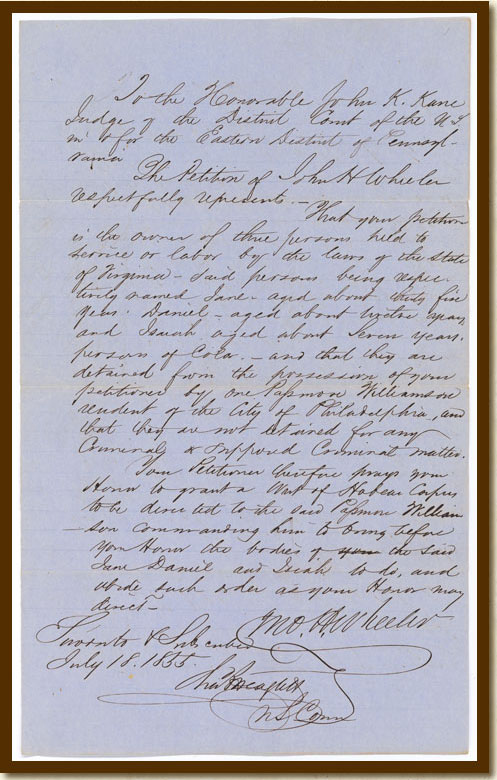 To the Honorable John K. Kane
Judge of the District Court of the U.S.
in & for the Eastern District of Pennsyl-
vania
The Petition of John H Wheeler
respectfully represents. -
That your petition
is the owner of three persons held to
service or labor by the laws of the State
of Virginia - Said persons being respec-
tively named Jane - aged about thirty five
years. Daniel - aged about twelve years,
and Isaiah aged about Seven years.
persons of Color. - and that they are
detained from the possession of your
petitioner by one Passmore Williamson
resident of the City of Philadelphia, and
that they are not detained for any
Criminal & supposed Criminal matter.
Your Petitioner therefore prays your
Honor to grant a Writ of Habeas Corpus
to be directed to the said Passmore William
- son commanding him to bring before
your Honor the bodies of the said
Jane Daniel and Isaiah to do, and
abide such order as your Honor may
direct -
Jno. H Wheeler
Sworn to & Subscribed
July 18. 1855
U S Comr